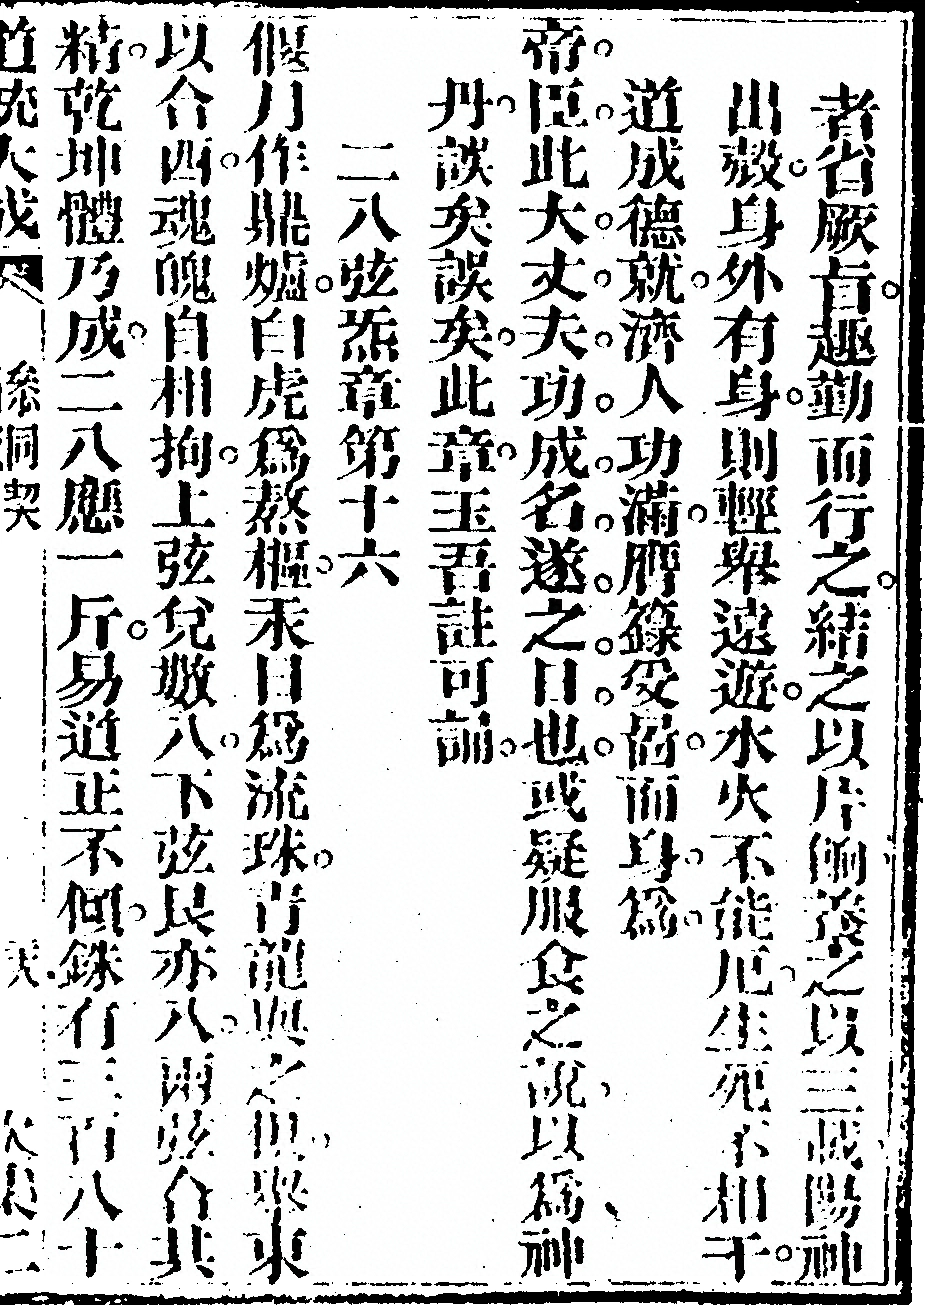 者省厥旨趣勤而行之結之以片餉養之以三載陽神
出殼身外有身則輕舉遠遊水火不能厄生死不相干
道成德就濟人功滿膺籙受箓而身爲
帝臣此大丈夫功成名遂之日也或疑服食之說以爲神
丹誤矣誤矣此章玉吾註可誦
二八弦炁章第十六
偃月作鼎爐白虎爲熬樞汞日爲流珠青龍與之俱舉東
以合西魂魄自相拘上弦兌數八下弦艮亦八兩弦合其
精乾坤體乃成二八應一斤易道正不傾銖有三百八十
道統大成 參同契